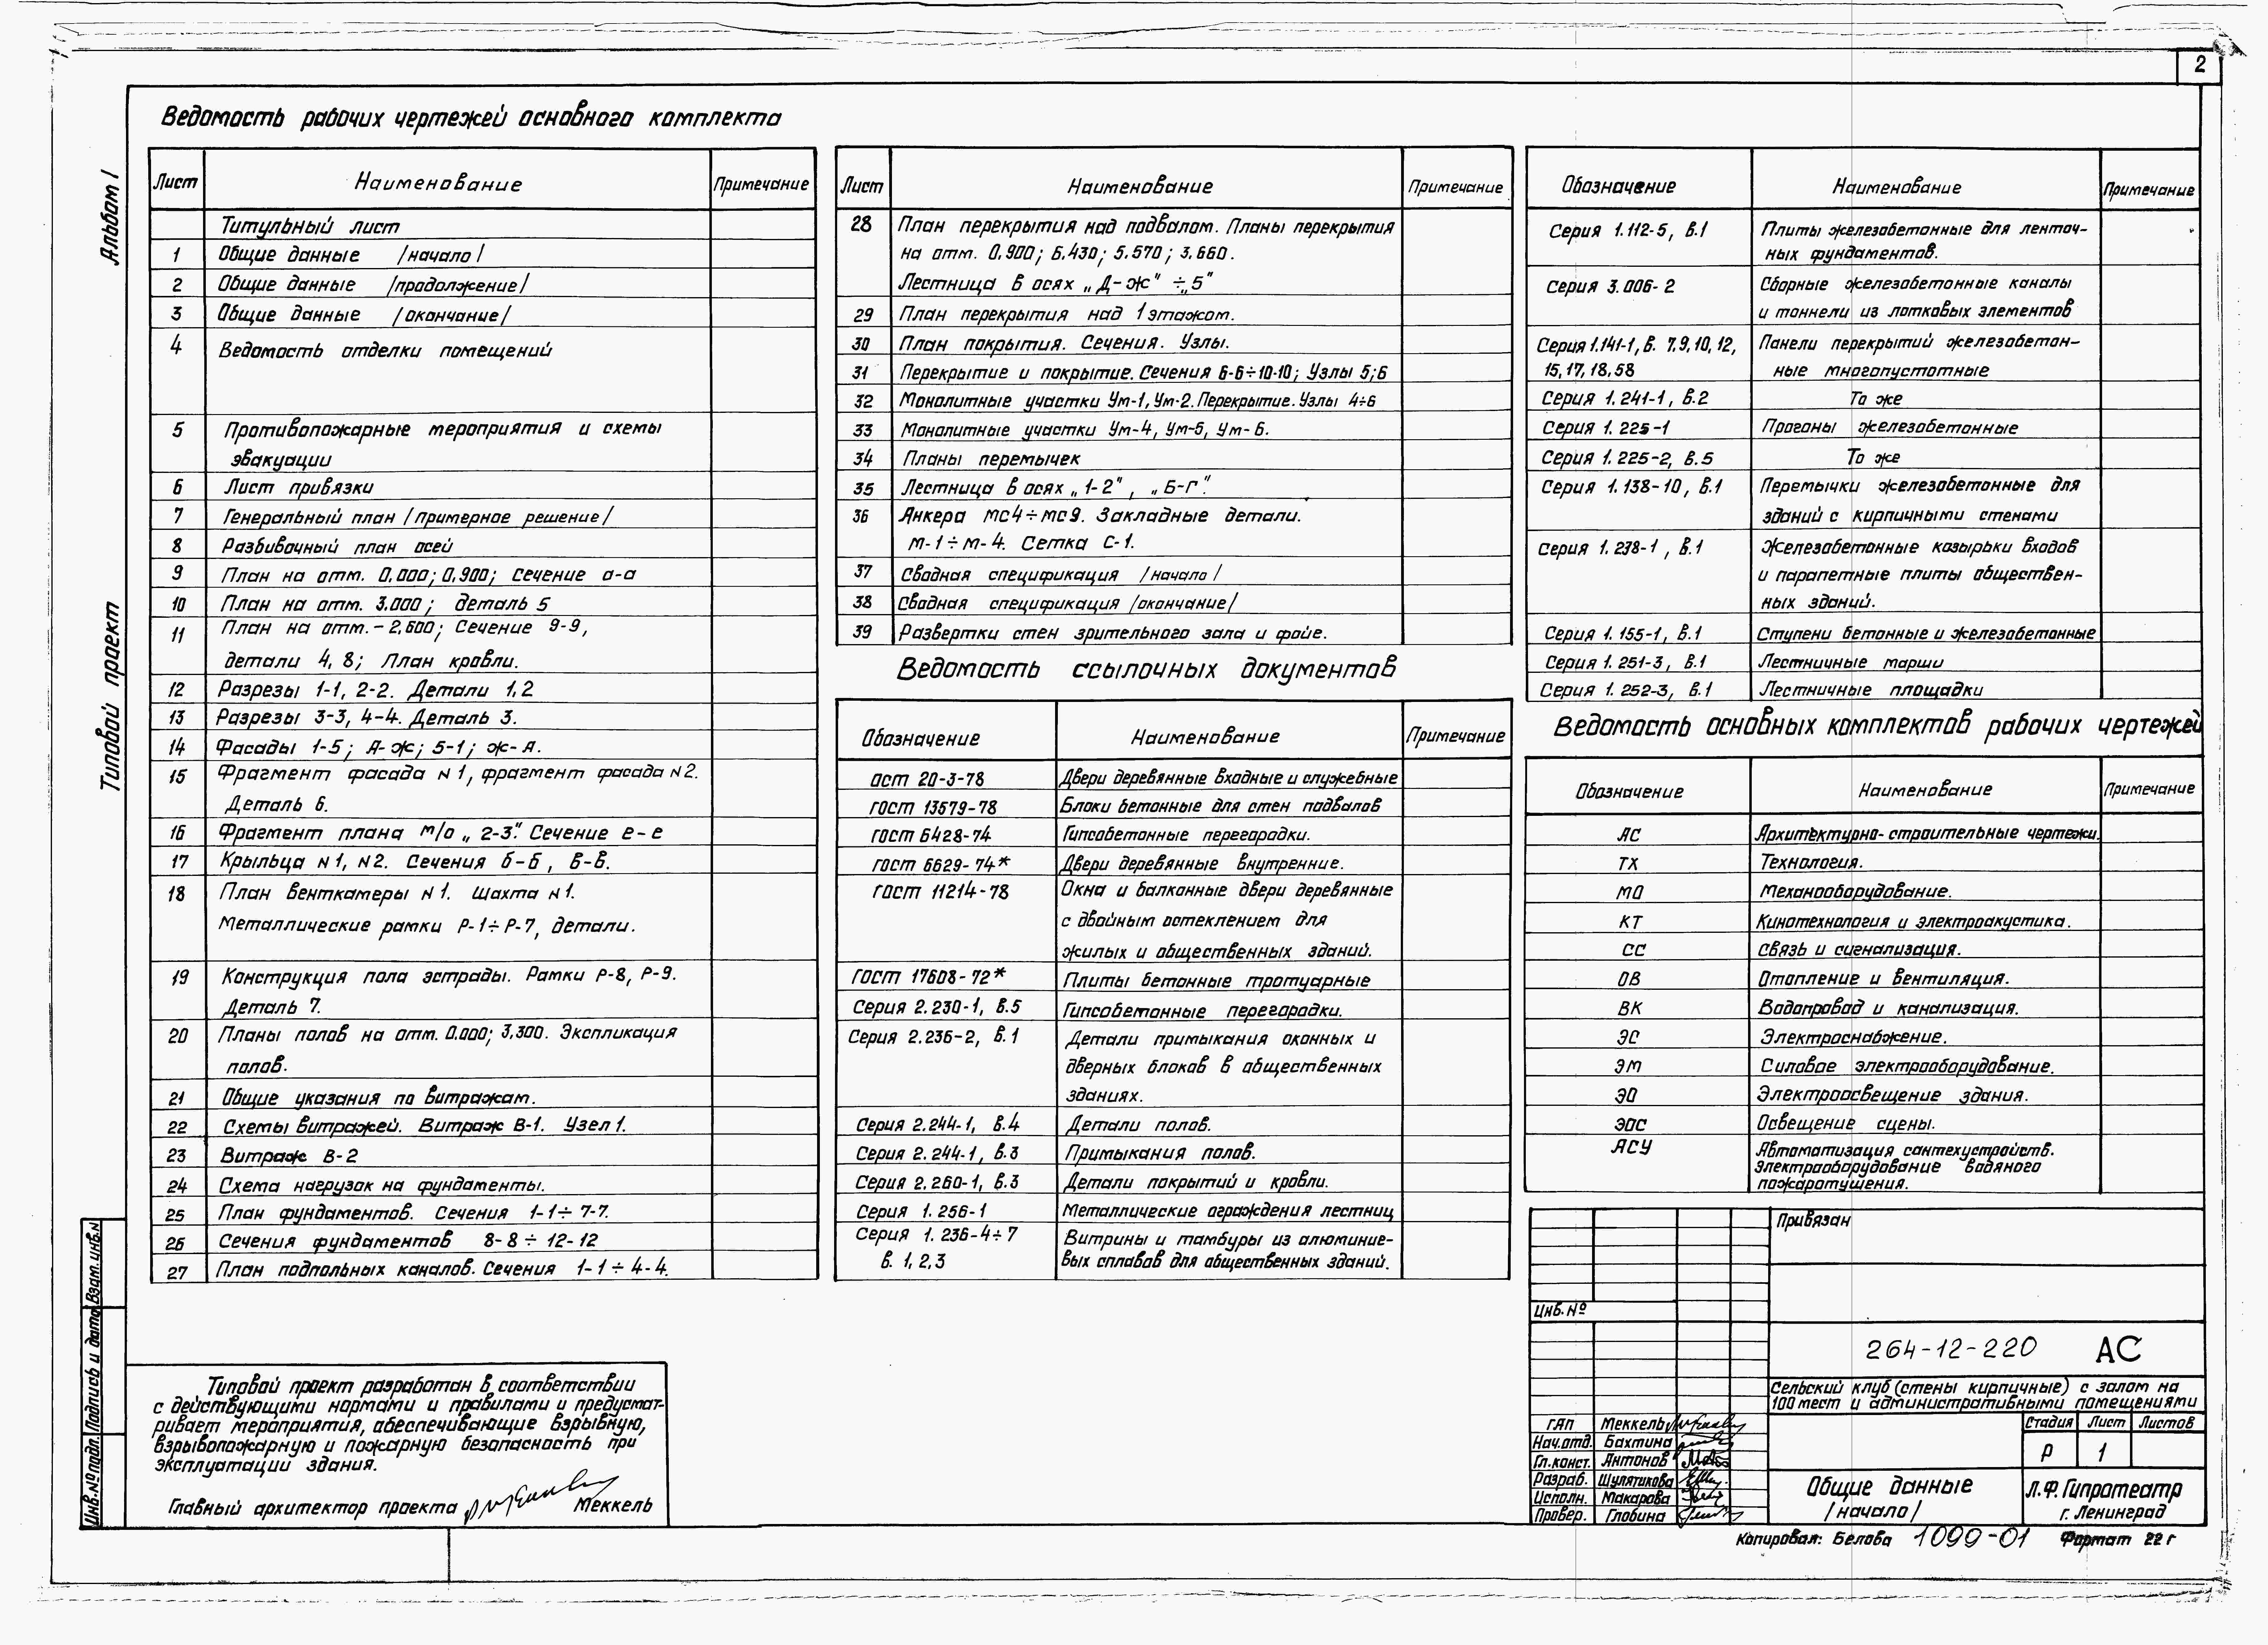 2
Альбом I
Типовой проект
Ведомость рабочих чертежей основного комплекта
Лист Наименование Примечание
Титульный лист
1 Общие данные /начало/
2 Общие данные /продолжение/
3 Общие данные /окончание/
4 Ведомость отделки помещений
5 Противопожарные мероприятия и схемы
эвакуации
6 Лист привязки
7 Генеральный план /примерное решение/
8 Разбивочный план осей
9 План на отм. 0,000; 0,900; Сечение а-а
10 План на отм. 3.000; деталь 5
11 План на отм. -2,600; Сечение 9-9,
детали 4, 8; План кровли.
12 Разрезы 1-1, 2-2. Детали 1,2
13 Разрезы 3-3, 4-4. Деталь 3.
14 Фасады 1-5; А-Ж; 5-1; Ж-А.
15 Фрагмент фасада N1, фрагмент фасада N2.
Деталь 6.
16 Фрагмент плана м/о „2-3". Сечение е-е
17 Крыльца N1, N2. Сечения б-б, в-в.
18 План венткамеры N1. Шахта N1.
Металлические рамки Р-1÷Р-7, детали.
19 Конструкция пола эстрады. Рамки Р-8, Р-9.
Деталь 7.
20 Планы полов на отм. 0.000; 3,300. Экспликация
полов.
21 Общие указания по витражам.
22 Схемы витражей. Витраж В-1. Узел 1.
23 Витраж В-2
24 Схема нагрузок на фундаменты.
25 План фундаментов. Сечения 1-1÷7-7.
26 Сечения фундаментов 8-8÷12-12
27 План подпольных каналов. Сечения 1-1÷4-4.
Лист Наименование Примечание
28 План перекрытия над подвалом. Планы перекрытия
на отм. 0,900; 6,430; 5,570; 3,660.
Лестница в осях „Д-Ж" ÷„5"
29 План перекрытия над 1 этажом.
30 План покрытия. Сечения. Узлы.
31 Перекрытие и покрытие. Сечения 6-6÷10-10; Узлы 5;6
32 Монолитные участки Ум-1, Ум-2. Перекрытие. Узлы 4÷6
33 Монолитные участки Ум-4, Ум-5, Ум-6.
34 Планы перемычек
35 Лестница в осях „1-2", „Б-Г".
36 Анкера мс4÷мс9. Закладные детали.
м-1÷м-4. Сетка С-1.
37 Сводная спецификация /начало/
38 Сводная спецификация /окончание/
39 Развертки стен зрительного зала и фойе.
Ведомость ссылочных документов
Обозначение Наименование Примечание
ост 20-3-78 Двери деревянные входные и служебные
гост 13579-78 Блоки бетонные для стен подвалов
гост 6428-74 Гипсобетонные перегородки.
гост 6629-74* Двери деревянные внутренние.
гост 11214-78 Окна и балконные двери деревянные
с двойным остеклением для
жилых и общественных зданий.
гост 17608-72* Плиты бетонные тротуарные
Серия 2.230-1, в.5 Гипсобетонные перегородки.
Серия 2.236-2, в.1 Детали примыкания оконных и
дверных блоков в общественных
зданиях.
Серия 2.244-1, в.4 Детали полов.
Серия 2.244-1, в.3 Примыкания полов.
Серия 2.260-1, в.3 Детали покрытий и кровли.
Серия 1.256-1 Металлические ограждения лестниц
Серия 1.236-4÷7 Витрины и тамбуры из алюминие-
в. 1,2,3 вых сплавов для общественных зданий.
Обозначение Наименование Примечание
Серия 1.112-5, в.1 Плиты железобетонные для ленточ-
ных фундаментов.
Серия 3.006-2 Сборные железобетонные каналы
и тоннели из лотковых элементов
Серия 1.141-1, в. 7,9,10,12, Панели перекрытий железобетон-
15,17,18,58 ные многопустотные
Серия 1.241-1, в.2 То же
Серия 1.225-1 Прогоны железобетонные
Серия 1.225-2, в.5 То же
Серия 1.138-10, в.1 Перемычки железобетонные для
зданий с кирпичными стенами
Серия 1.238-1, в.1 Железобетонные козырьки входов
и парапетные плиты обществен-
ных зданий.
Серия 1.155-1, в.1 Ступени бетонные и железобетонные
Серия 1.251-3, в.1 Лестничные марши
Серия 1.252-3, в.1 Лестничные площадки
Ведомость основных комплектов рабочих чертежей
Обозначение Наименование Примечание
АС Архитектурно-строительные чертежи.
ТХ Технология.
МО Механооборудование.
КТ Кинотехнология и электроакустика.
СС Связь и сигнализация.
ОВ Отопление и вентиляция.
ВК Водопровод и канализация.
ЭС Электроснабжение.
ЭМ Силовое электрооборудование.
ЭО Электроосвещение здания.
ЭОС Освещение сцены.
АСУ Автоматизация сантехустройств.
Электрооборудование водяного
пожаротушения.
Типовой проект разработан в соответствии
с действующими нормами и правилами и предусмат-
ривает мероприятия, обеспечивающие взрывную,
взрывопожарную и пожарную безопасность при
эксплуатации здания.
Главный архитектор проекта Меккель
Инв.№ подл. Подпись и дата Взам.инв.N
Привязан
Инв.№
264-12-220 АС
Сельский клуб (стены кирпичные) с залом на
100 мест и административными помещениями
Стадия Лист Листов
Р 1
ГАП Меккель
Нач.отд. Бахтина
Гл.конст. Антонов
Разраб. Шулятикова
Исполн. Макарова
Провер. Глобина
Общие данные
/начало/
Л.Ф. Гипротеатр
г. Ленинград
Копировал: Белова 1099-01 Формат 22г